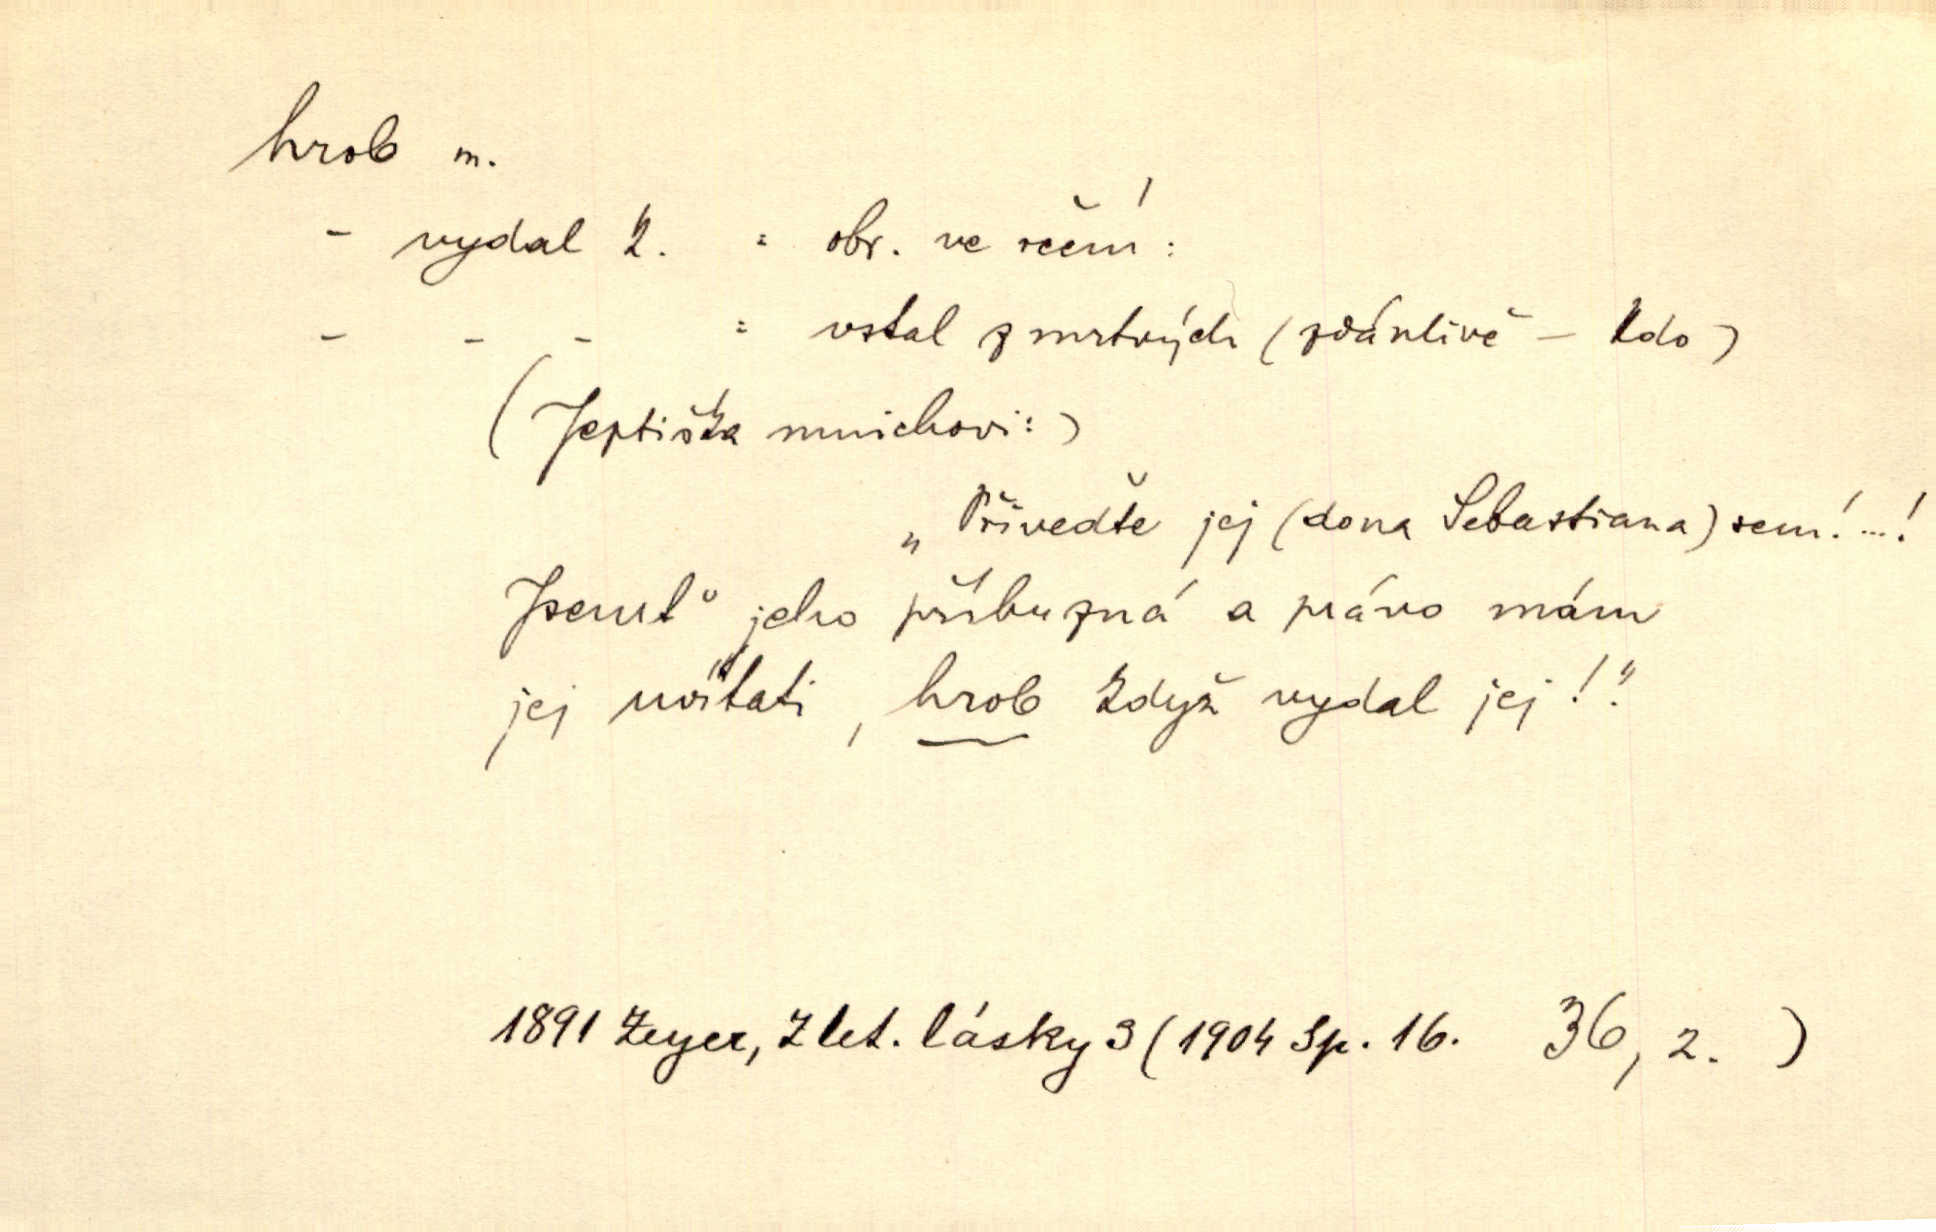 hrob m.
- vydal k. = obr. ve rčení:
- - - = vstal z mrtvých (zdánlivě - kdo)
(Jeptiška mnichovi:)
„Přiveďte jej (dona Sebastiana) sem! ...!
Jsemť jeho příbuzná a právo mám
jej uvítati, hrob když vydal jej!“
1891 Zeyer, Z let. lásky 3 (1904 Sp. 16. 36, 2. )